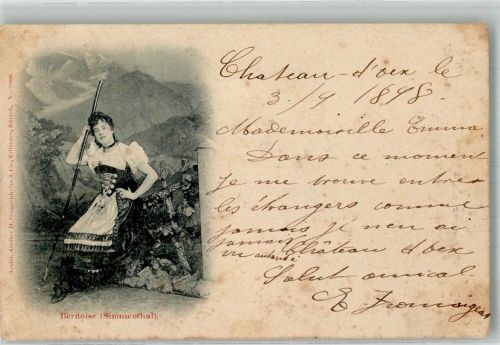 Chateau-d'oex le
3./9 1898.
Mademoiselle Emma
Dans ce moment
je me trouve entre
les étrangers comme
jamais je n'en ai
jamais vu autant a
Château d'oex
Salut amical
E
Bernoise (Simmenthal).
Artist. Atelier H. Guggenheim & Co., Editeurs, Zürich. No.